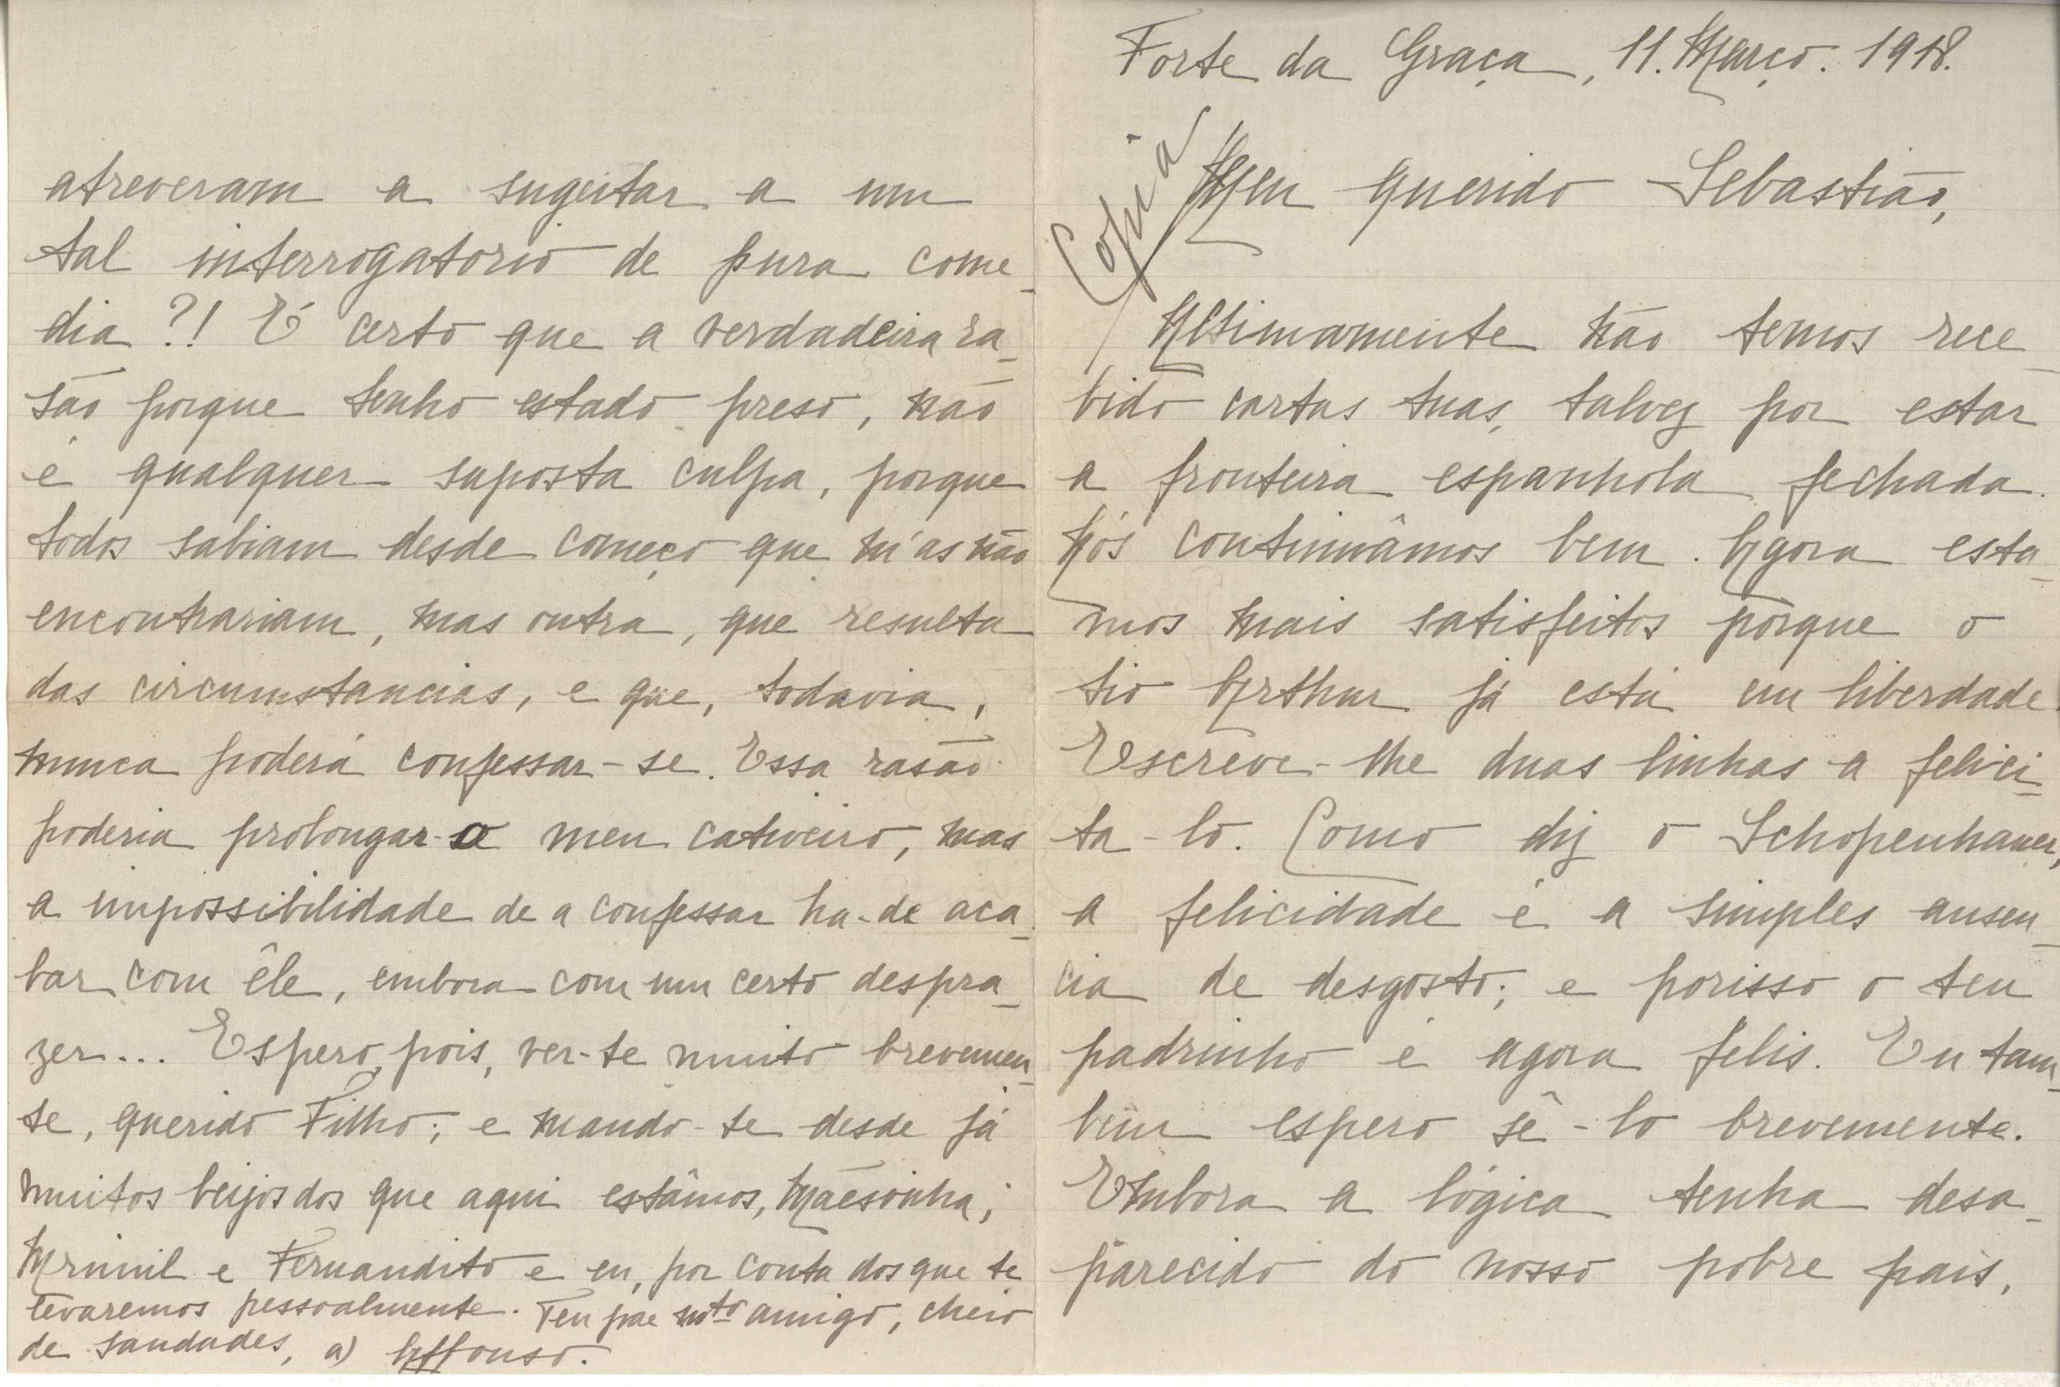 Forte da Graça, 11. Março. 1918.
Copia
Meu querido Sebastião,
Ultimamente não temos rece-
bido cartas tuas, talvez por estar
a fronteira espanhola fechada.
Nós continuâmos bem. Agora esta-
mos mais satisfeitos porque o
tio Arthur já está em liberdade.
Escreve-lhe duas linhas a felici-
ta-lo. Como diz o Schopenhauer,
a felicidade é a simples ausen-
cia de desgosto; e porisso o teu
padrinho é agora felis. Eu tam-
bem espero sê-lo brevemente.
Embora a lógica tenha desa-
parecido do nosso pobre pais,
atreveram a sugeitar a um
tal interrogatorio de pura come-
dia?! É certo que a verdadeira ra-
são porque tenho estado preso, não
é qualquer suposta culpa, porque
todos sabiam desde começo que m'as não
encontrariam, mas outra, que resulta
das circumstancias, e que, todavia,
nunca poderá confessar-se. Essa rasão
poderia prolongar o meu cativeiro, mas
a impossibilidade de a confessar ha-de aca-
bar com êle, embora com um certo despra-
zer... Espero, pois, ver-te muito brevemen-
te, querido Filho; e mando-te desde já
muitos beijos dos que aqui estâmos, Mãesinha,
Mriminil e Fernandito e eu, por conta dos que te
levaremos pessoalmente. Teu pae mto amigo, cheio
de saudades, a) Affonso.